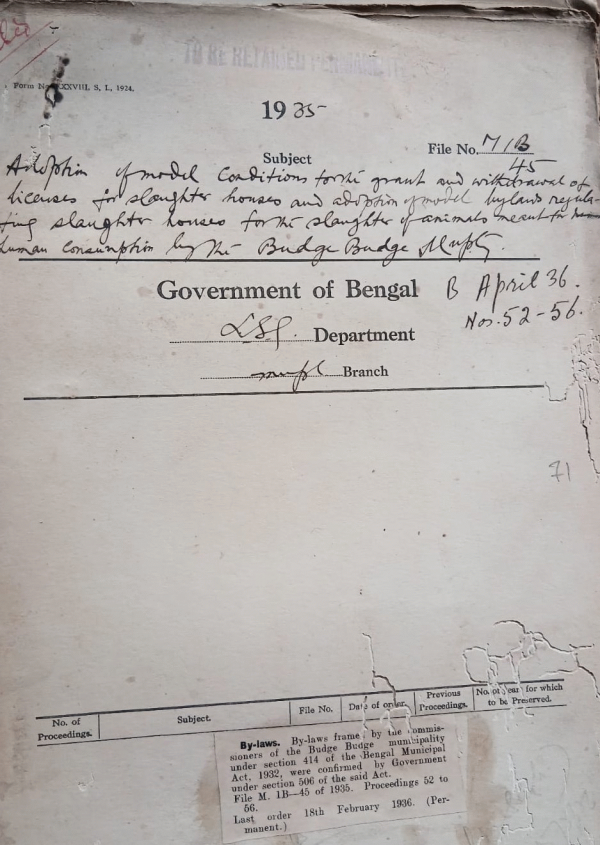 TO BE RETAINED PERMANENTLY
Form No. XXVIII, S. L., 1924.
1935
File No. M 1B
45
Subject
Adoption of model Conditions for the grant and withdrawal of
licenses for slaughter houses and adoption of model bylaws regula-
ting slaughter houses for the slaughter of animals meant for
human consumption by the Budge Budge Mupty.
Government of Bengal
B April 36.
Nos. 52-56.
LSG. Department
Branch
71
No. of Proceedings.
Subject.
File No.
Date of order.
Previous Proceedings.
No. of year for which to be Preserved.
By-laws. By-laws frame by the commis-
sioners of the Budge Budge municipality
under section 414 of the Bengal Municipal
Act, 1932, were confirmed by Government
under section 506 of the said Act.
File M. 1B—45 of 1935. Proceedings 52 to
56.
Last order 18th February 1936. (Per-
manent.)